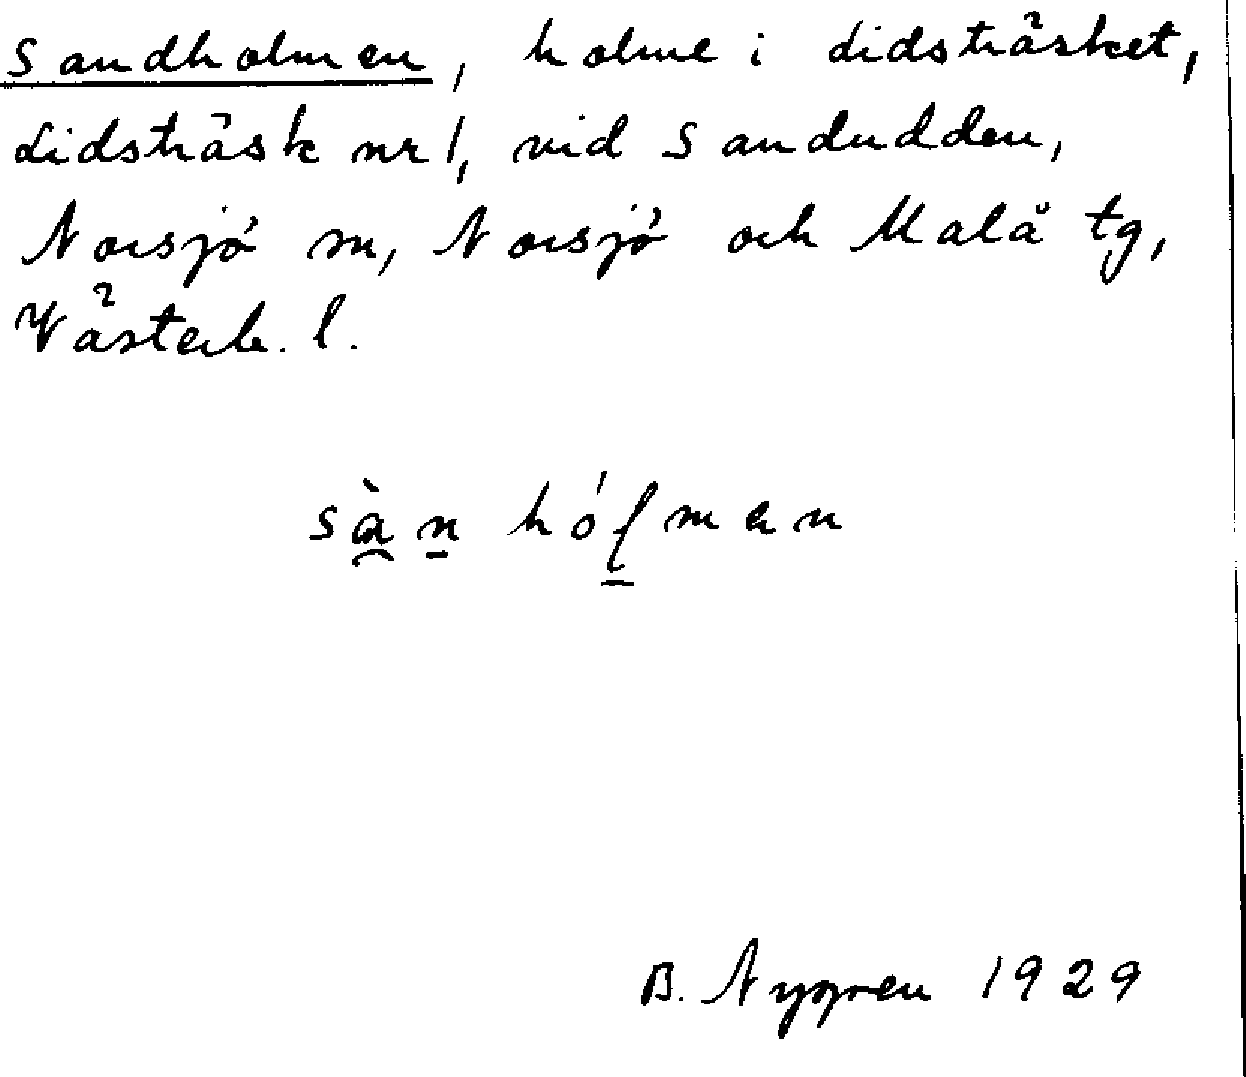 Sandholmen, holme i Lidsträsket,
Lidsträsk nr 1, vid Sandudden,
Norsjö sn, Norsjö och Malå tg,
Västerb. l.
sàn hólmen
B. Nygren 1929